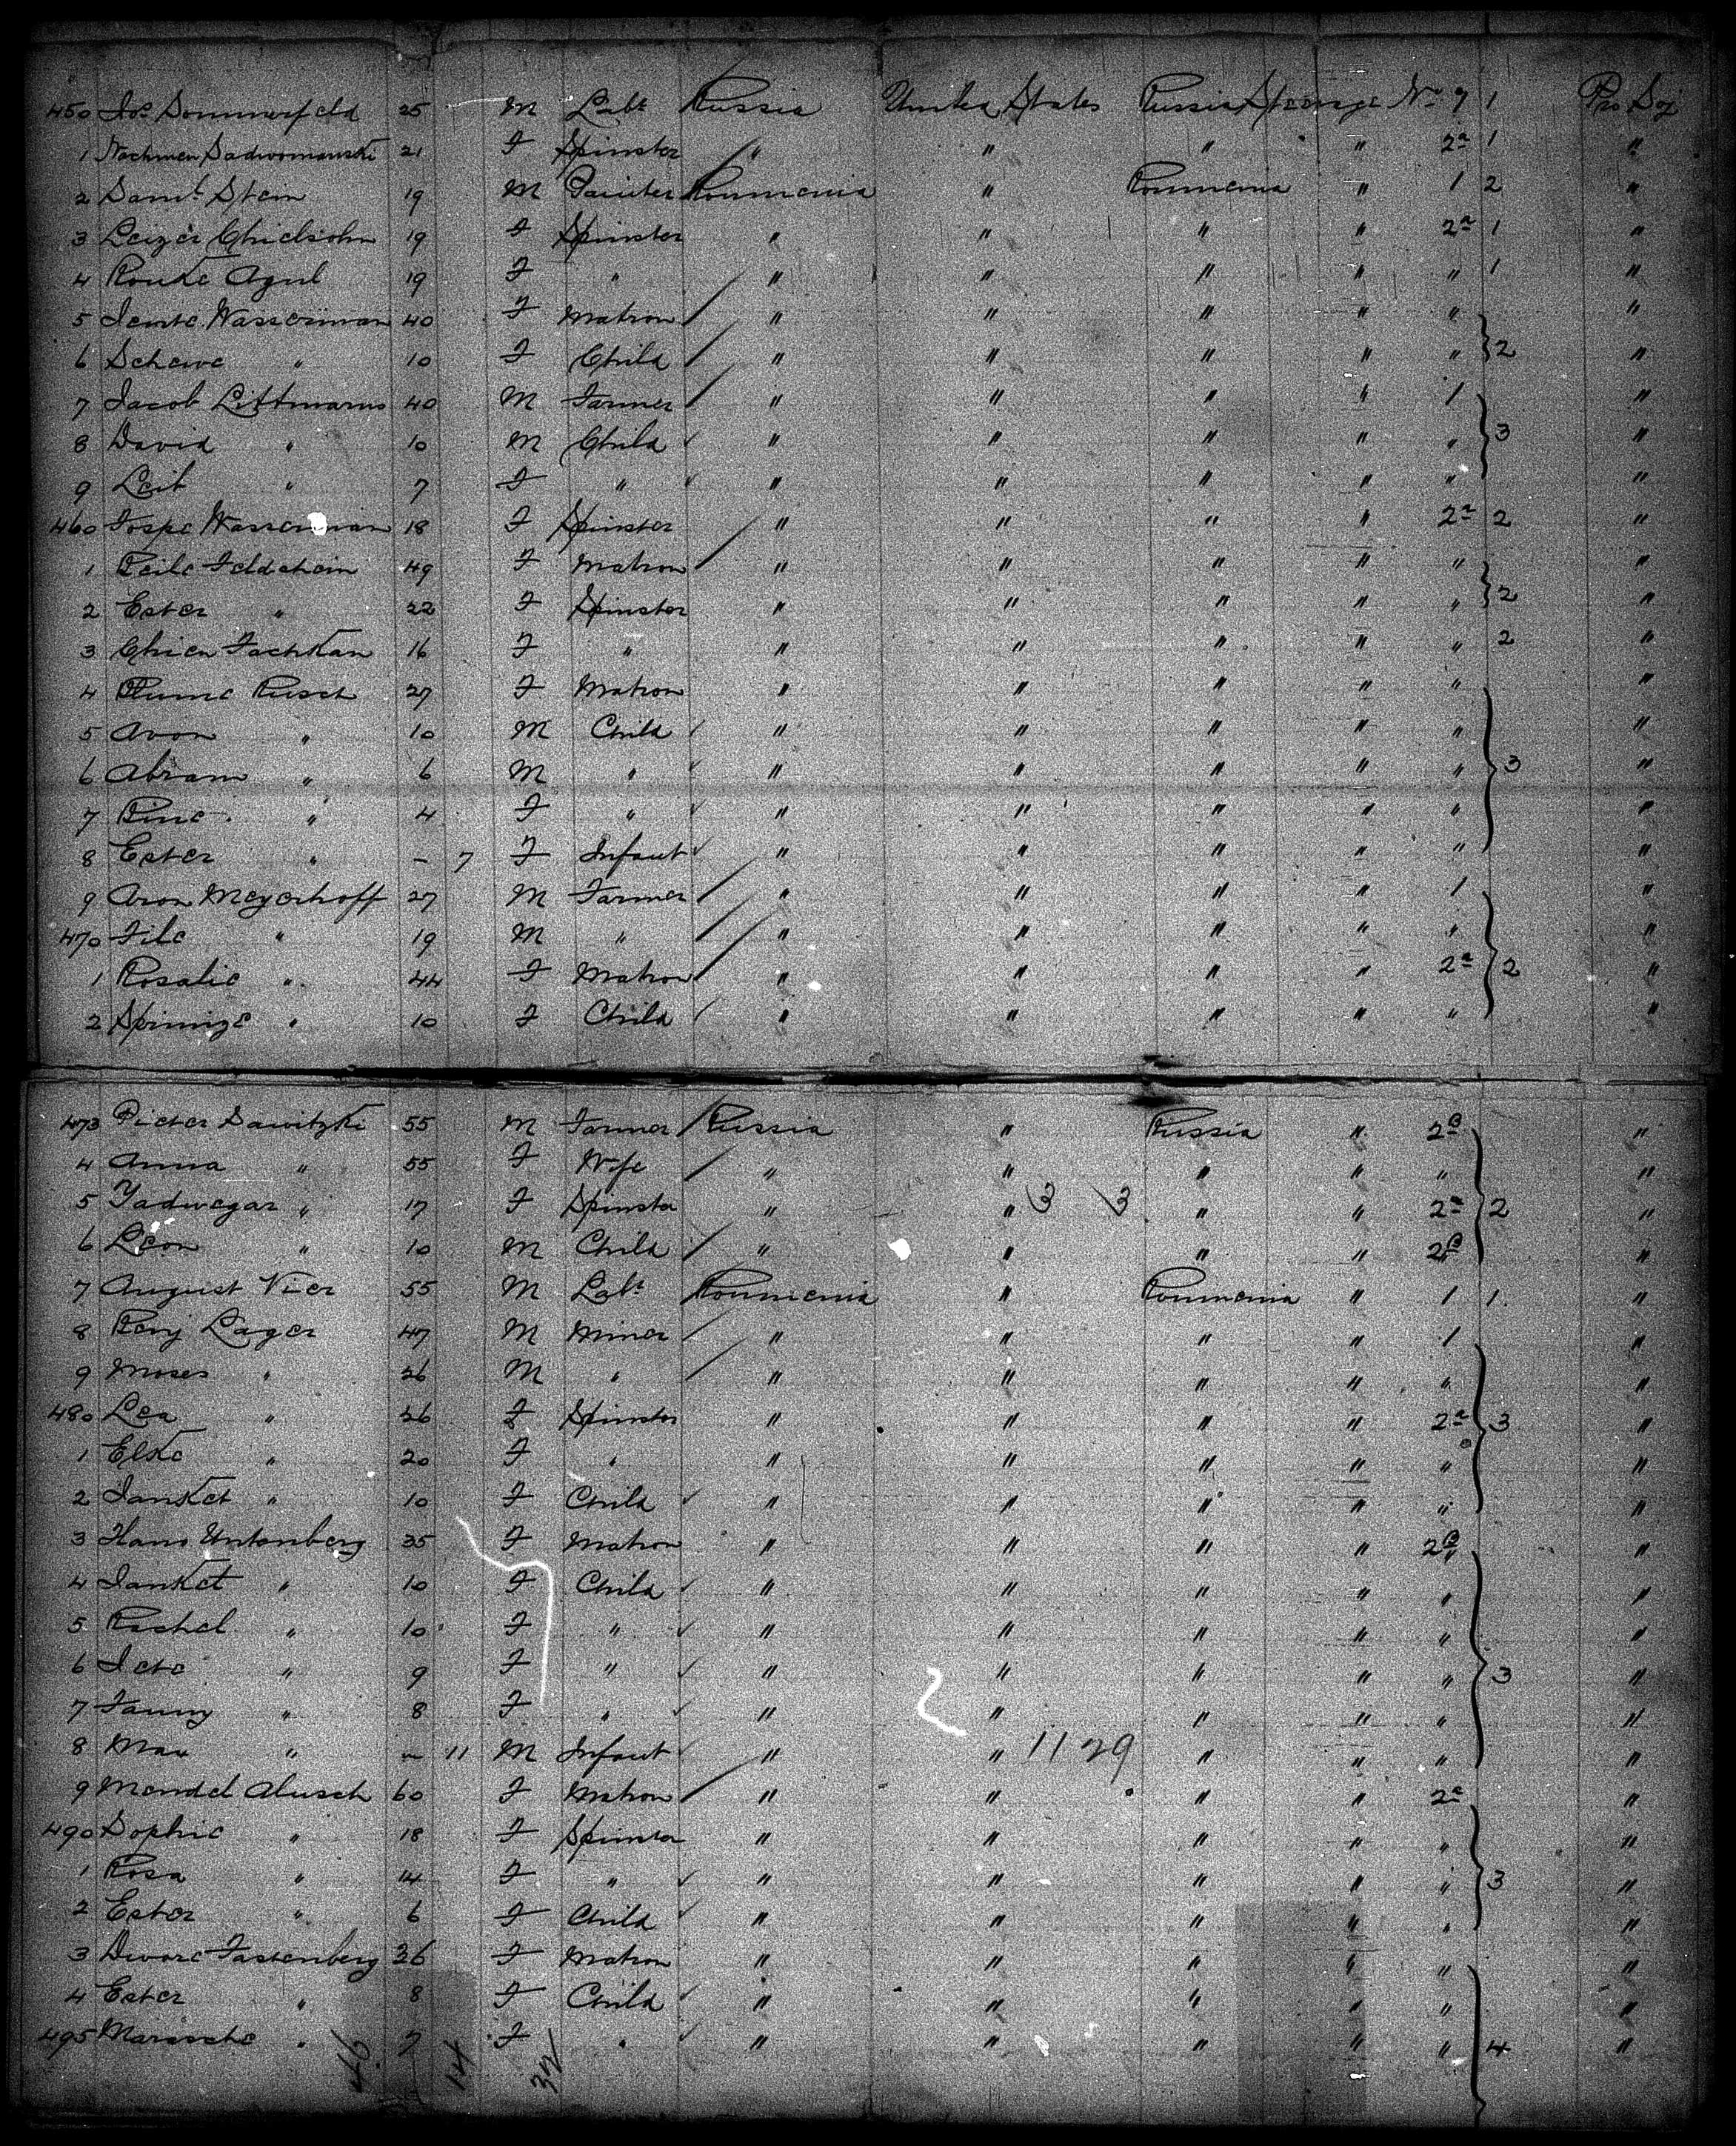 450 Jos. Sommerfeld 25 M Labr Russia United States Russia Steerage No 7 1 Pro Soj
1 Nachmen Sadwomanski 21 F Spinster " " " " 2a 1 "
2 Saml. Stein 19 M Painter Roumania " Roumania " 1 2 "
3 Leizer Chielsohn 19 F Spinster " " " " 2a 1 "
4 Rouke Agul 19 F " " " " " " 1 "
5 Jente Wasserman 40 F Matron " " " " " "
6 Scheive " 10 F Child " " " " " 2 "
7 Jacob Littmans 40 M Farmer " " " " 1 "
8 David " 10 M Child " " " " " 3 "
9 Leib " 7 F " " " " " " "
460 Jospe Wasserman 18 F Spinster " " " " 2a 2 "
1 Peile Feldchein 49 F Matron " " " " " "
2 Ester " 22 F Spinster " " " " " 2 "
3 Chien Fachkan 16 F " " " " " " 2 "
4 Rusch 27 F Matron " " " " " "
5 Avon " 10 M Child " " " " " "
6 Abram " 6 M " " " " " " 3 "
7 " 4 F " " " " " " "
8 Ester " - 7 F Infant " " " " " "
9 Aron Meyerhoff 27 M Farmer " " " " 1 "
470 File " 19 M " " " " " " "
1 Rosalie " 44 F Matron " " " " 2a 2 "
2 Sprinize " 10 F Child " " " " " "
473 Pieter Sawitzki 55 M Farmer Russia " Russia " 2B "
4 Anna " 55 F Wife " " " " " "
5 Yadwegar " 17 F Spinster " " 3 3 " " 2a 2 "
6 Leon " 10 M Child " " " " 2B "
7 August Vier 55 M Labr Roumenia " Roumenia " 1 1 "
8 Benj Lager 47 M Miner " " " " 1 "
9 Moses " 26 M " " " " " " "
480 Lea " 26 F Spinster " " " " 2a 3 "
1 Elke " 20 F " " " " " " "
2 Janket " 10 F Child " " " " " "
3 Hans Untenberg 35 F Matron " " " " 2B " "
4 Janket " 10 F Child " " " " " "
5 Rachel " 10 F " " " " " " "
6 Jete " 9 F " " " " " " 3 "
7 Fanny " 8 F " " " " " " "
8 Max " - 11 M Infant " " 11 29 " " " "
9 Mendel Alusch 60 F Matron " " " " 2a "
490 Sophie " 18 F Spinster " " " " " "
1 Rosa " 14 F " " " " " " 3 "
2 Ester " 6 F Child " " " " " "
3 Dwore Fastenberg 36 F Matron " " " " " "
4 Ester " 8 F Child " " " " " "
495 Marasche " 7 F " " " " " " 4 "
46 14 32